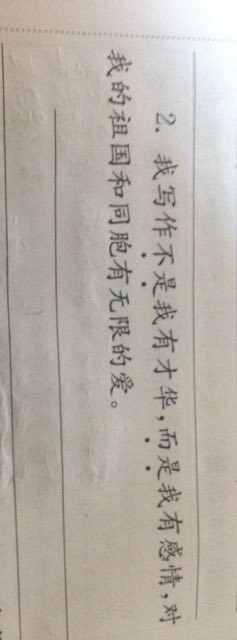 2. 我写作不是我有才华，而是我有感情，对
我的祖国和同胞有无限的爱。